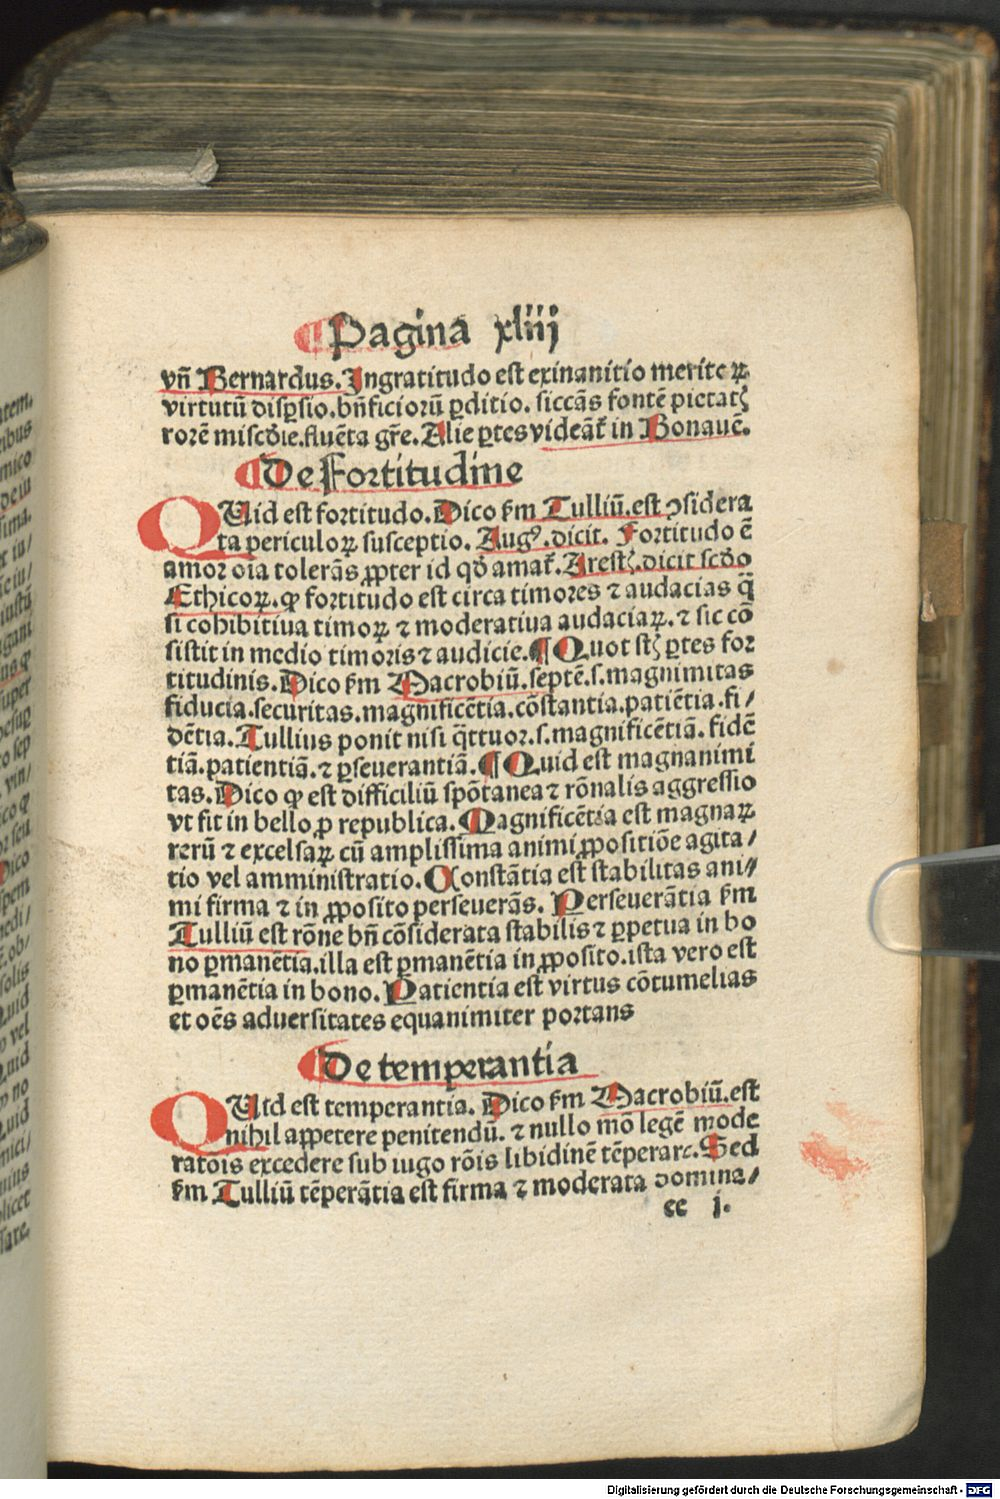 ¶Pagina xliij
vñ Bernardus. Ingratitudo est exinanitio merito ꝝ
virtutū disꝑsio. bñficiorū ꝑditio. siccãs fontē pietatꝭ
rorē miscdie. fluēta gr̄e. Alie ꝑtes videãt̄ in Bonauē.
¶De Fortitudine
QUid est fortitudo. Dico ẜm Tulliū. est ꝯsidera
ta periculoꝝ susceptio. Augꝰ. dicit. Fortitudo ē
amor oīa tolerãs ꝓpter id qd̓ amat̄. Arestꝭ. dicit scd̓o
Ethicoꝝ. ꝙ fortitudo est circa timores ⁊ audacias q̄
si cohibitiua timoꝝ ⁊ moderatiua audaciaꝝ. ⁊ sic cō
sistit in medio timoris ⁊ audicie. ¶ Quot st̄ꝭ ꝑtes for
titudinis. Dico ẜm Macrobiū. septē. s. magnimitas
fiducia. securitas. magnificētia. cōstantia. patiētia. fi/
dētia. Tullius ponit nisi q̄ttuor. s. magnificētiã. fidē
tiã. patientiã. ⁊ ꝑseuerantiã. ¶ Quid est magnanimi
tas. Dico ꝙ est difficiliū spōtanea ⁊ rōnalis aggressio
vt fit in bello ꝓ republica. Magnificētia est magnaꝝ
rerū ⁊ excelsaꝝ cū amplissima animi ꝓpositiōe agita/
tio vel amministratio. Constãtia est stabilitas ani/
mi firma ⁊ in ꝓposito perseuerãs. Perseuerãtia ẜm
Tulliū est rōne bñ cōsiderata stabilis ⁊ ꝑpetua in bo
no ꝑmanētia. illa est ꝑmanētia in ꝓposito. ista vero est
ꝑmanētia in bono. Patientia est virtus cōtumelias
et oēs aduersitates equanimiter portans
¶De temperantia
QUid est temperantia. Dico ẜm Macrobiū. est
nihil appetere penitendū. ⁊ nullo mō legē mode
ratōis excedere sub iugo rōis libidinē tēperare. Sed
ẜm Tulliū tēperãtia est firma ⁊ moderata domina/
cc j.
Digitalisierung gefördert durch die Deutsche Forschungsgemeinschaft - DFG